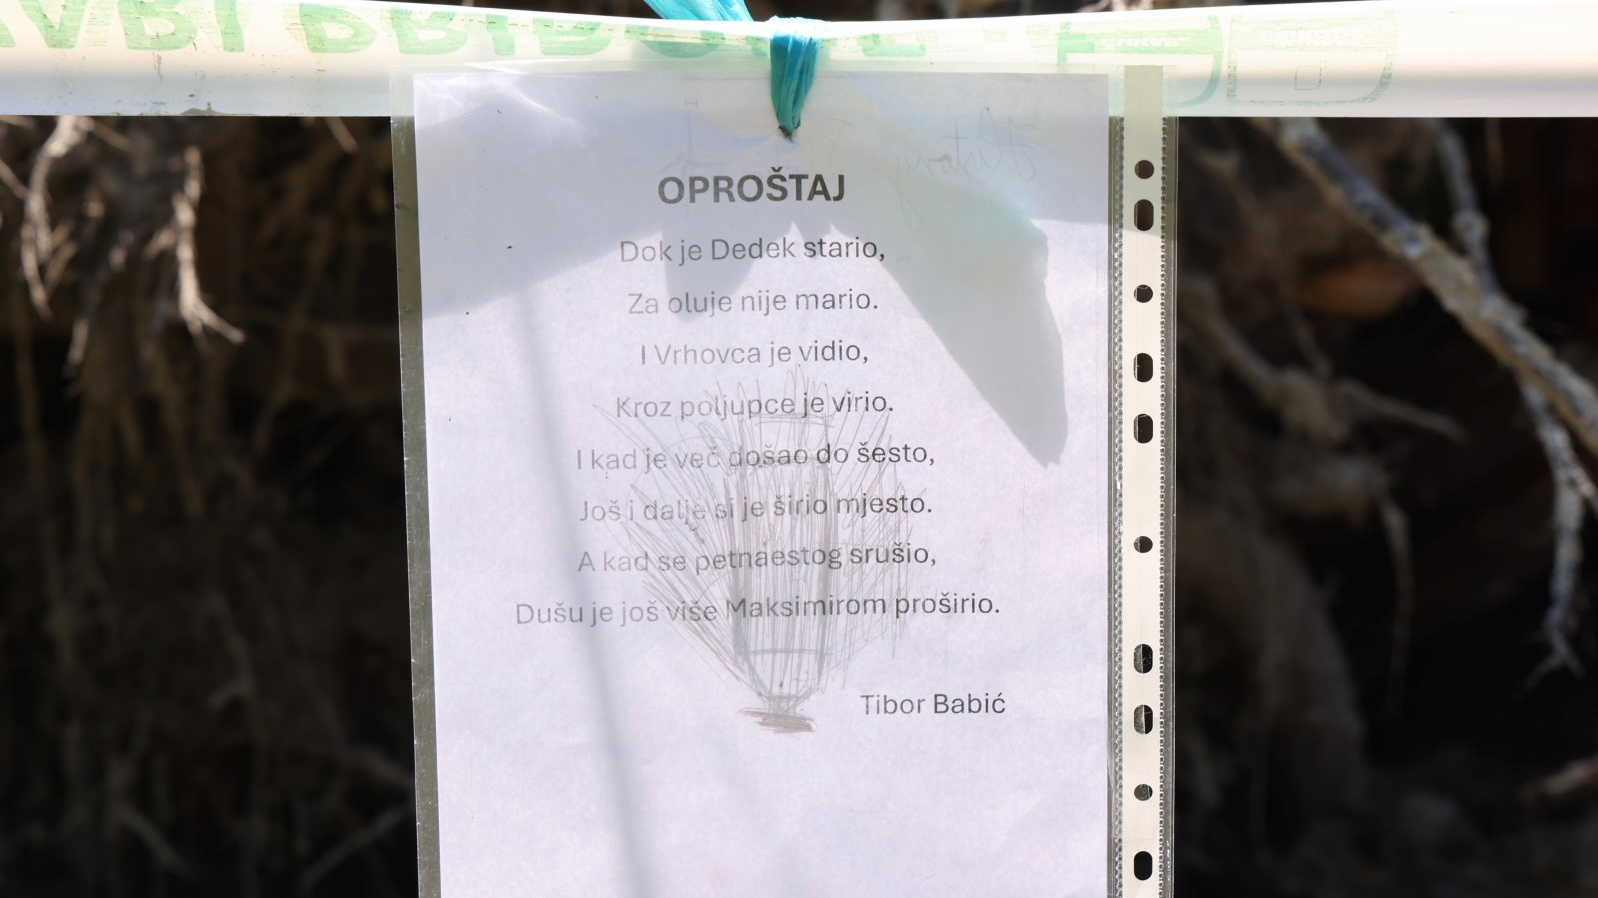 OPROŠTAJ
Dok je Dedek stario,
Za oluje nije mario.
I Vrhovca je vidio,
Kroz poljupce je virio.
I kad je več došao do šesto,
Još i dalje si je širio mjesto.
A kad se petnaestog srušio,
Dušu je još više Maksimirom proširio.
Tibor Babić